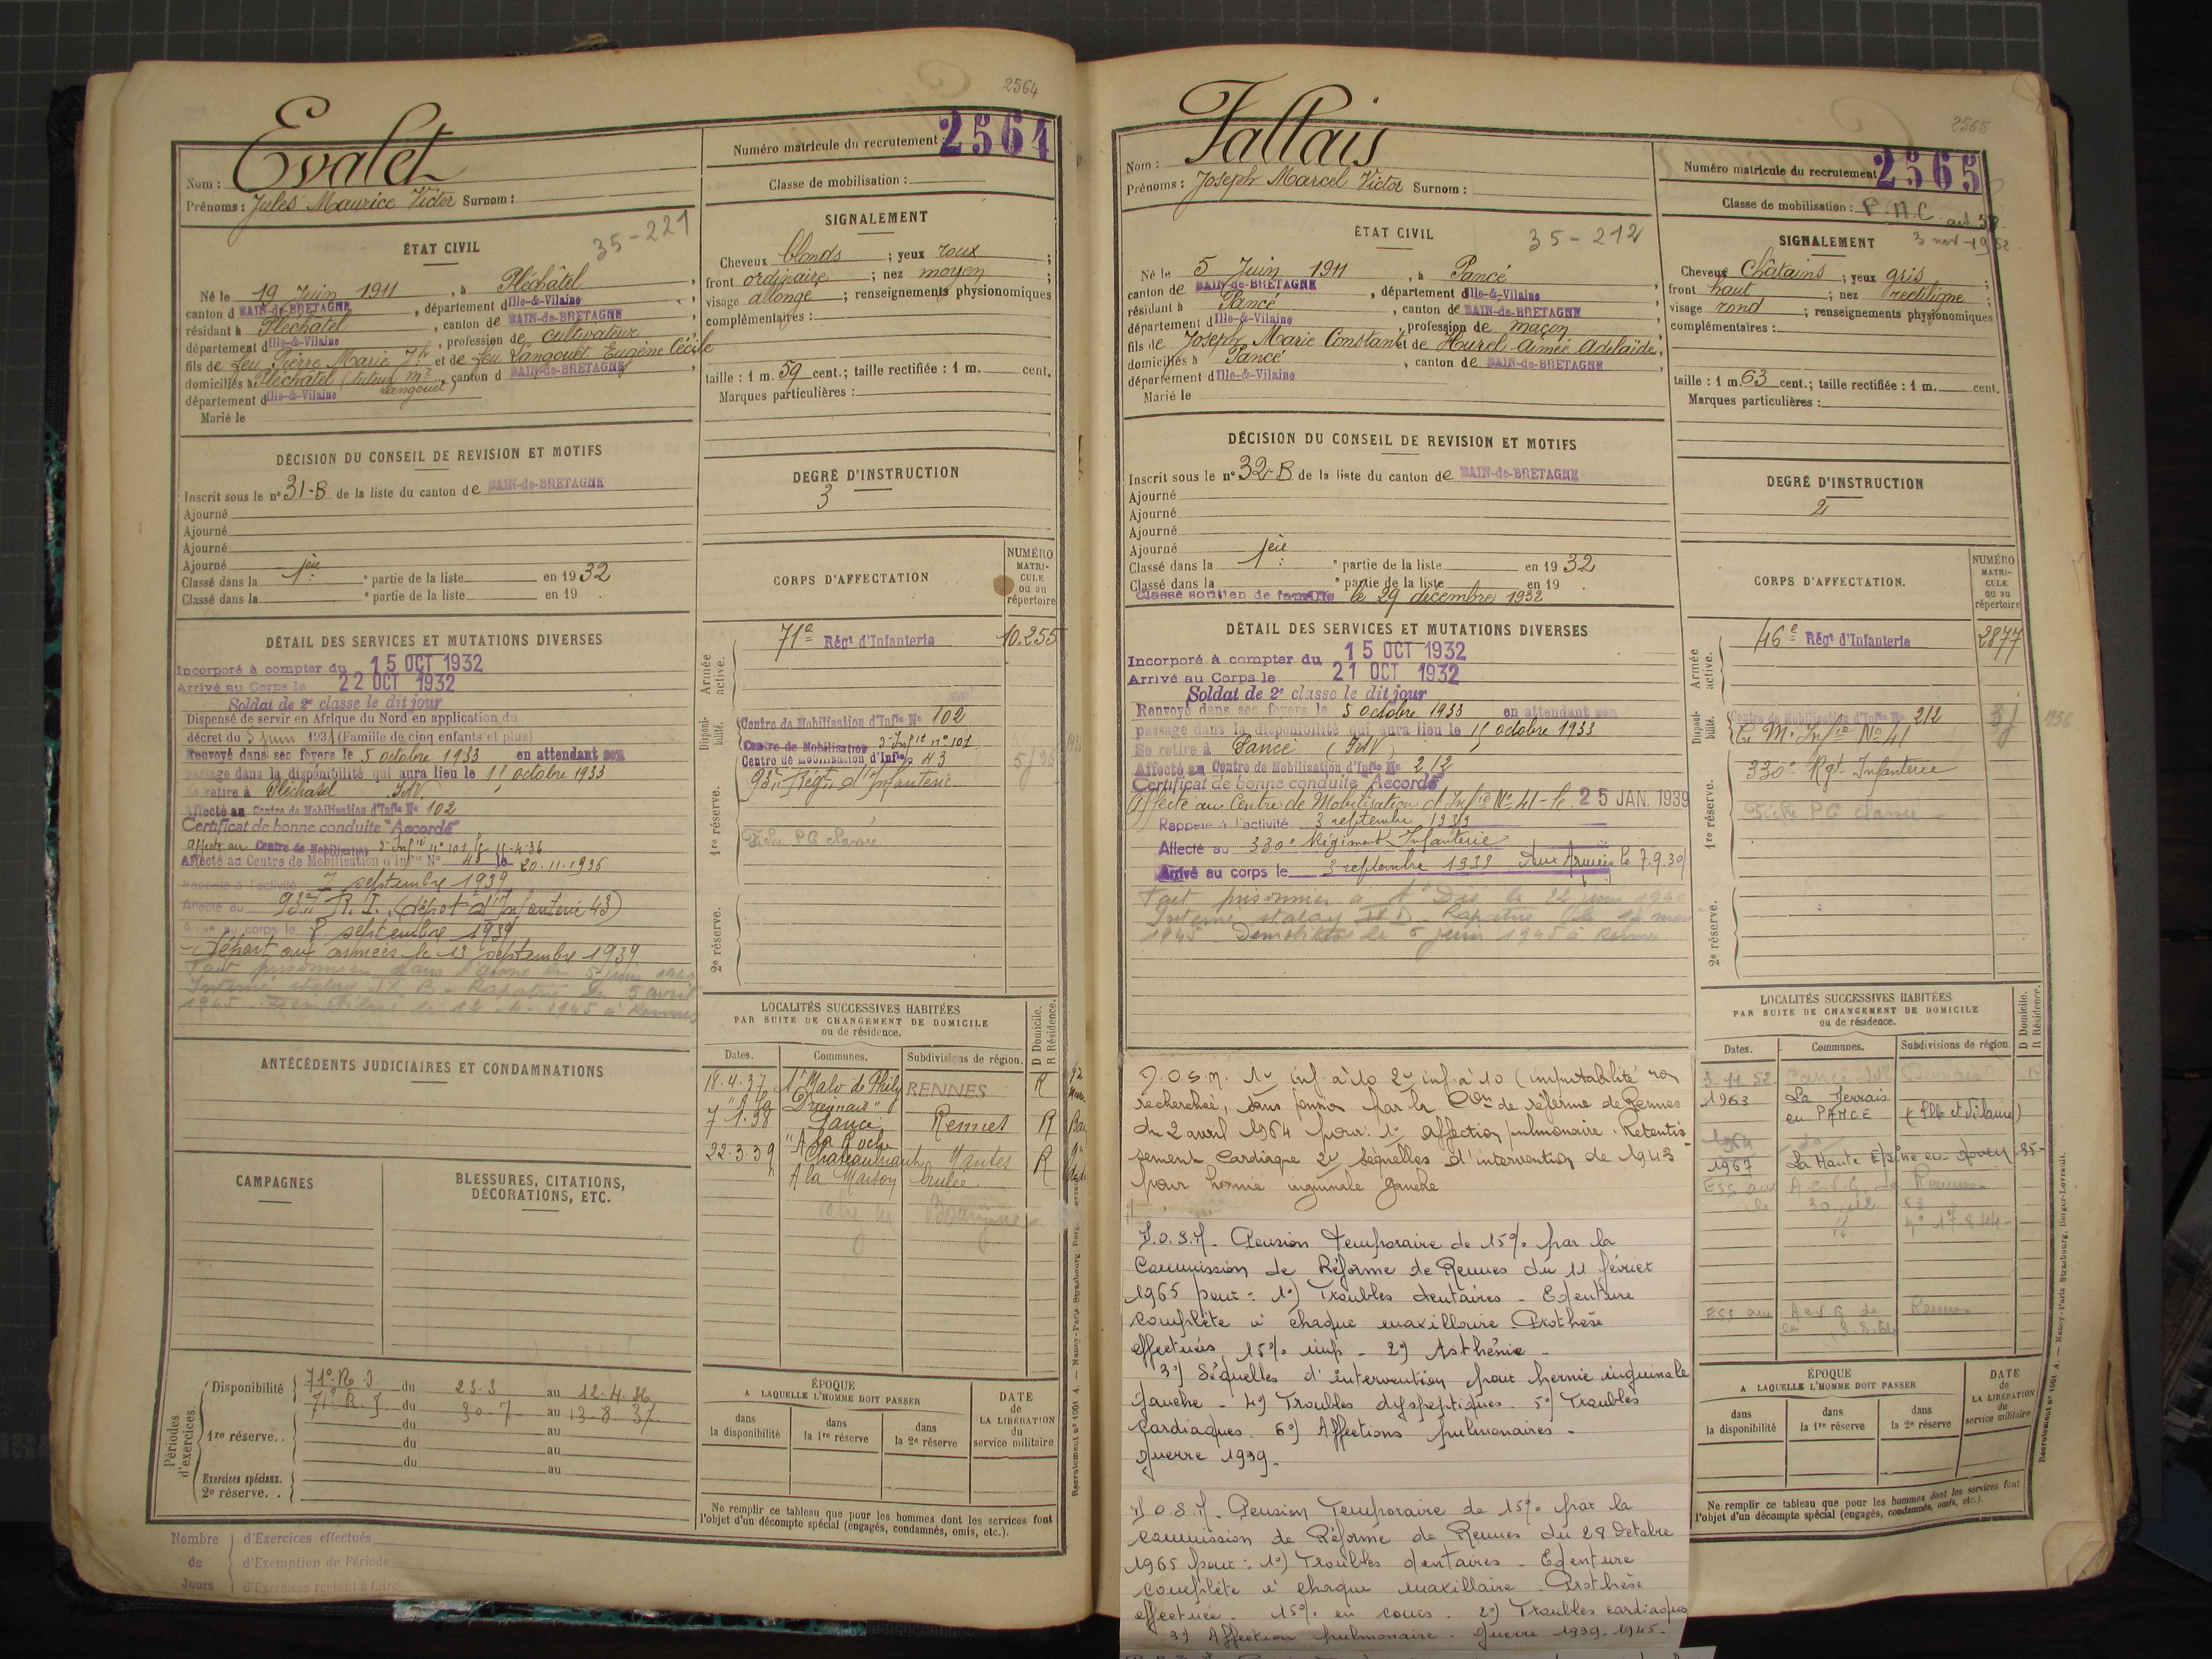 2564
Evalet
Nom :
Prénoms : Jules Maurice Victor Surnom :
Numéro matricule du recrutement : 2564
Classe de mobilisation :
ÉTAT CIVIL
35-221
Né le 19 Juin 1911, à Pléchâtel
canton d BAIN-de-BRETAGNE, département d Ille-&-Vilaine
résidant à Pléchâtel, canton de BAIN-de-BRETAGNE
département d Ille-&-Vilaine, profession de cultivateur
fils de feu Pierre Marie Jh et de feu Langouët Eugène Cécile
domiciliés à Pléchâtel (tuteur Mr Langouët), canton d BAIN-de-BRETAGNE
département d Ille-&-Vilaine
Marié le
SIGNALEMENT
Cheveux blonds ; yeux roux ;
front ordinaire ; nez moyen ;
visage allongé ; renseignements physionomiques
complémentaires :
taille : 1 m. 59 cent.; taille rectifiée : 1 m. cent.
Marques particulières :
DÉCISION DU CONSEIL DE REVISION ET MOTIFS
Inscrit sous le n° 31-B de la liste du canton de BAIN-de-BRETAGNE
Ajourné
Ajourné
Ajourné
Ajourné
Classé dans la 1ère partie de la liste en 1932
Classé dans la e partie de la liste en 19 .
DEGRÉ D'INSTRUCTION
3
DÉTAIL DES SERVICES ET MUTATIONS DIVERSES
Incorporé à compter du 15 OCT 1932
Arrivé au Corps le 22 OCT 1932
Soldat de 2e classe le dit jour
Dispensé de servir en Afrique du Nord en application du
décret du 5 juin 1931 (Famille de cinq enfants et plus)
Renvoyé dans ses foyers le 5 octobre 1933 en attendant son
passage dans la disponibilité qui aura lieu le 15 octobre 1933
Se retire à Pléchatel I&V.
Affecté au Centre de Mobilisation d'Infie N° 102
Certificat de bonne conduite "Accordé"
Affecté au Centre de Mobilisation d'Infie n° 101 le 15-4-36
Affecté au Centre de Mobilisation d'Infie N° 43 le 20.11.1936
Rappelé à l'activité 7 septembre 1939
Affecté au 93e R.I. (dépôt d'Infanterie 43)
Arrivé au corps le 8 septembre 1939
Départ aux armées le 13 septembre 1939
Fait prisonnier dans l'aisne le 5 juin 1940
Interné stalag IX B - Rapatrié le 5 avril
1945
CORPS D'AFFECTATION
NUMÉRO MATRICULE ou au répertoire
Armée active.
71e Régt d'Infanterie 10.255
Disponibilité.
Centre de Mobilisation d'Infie No 102
Centre de Mobilisation d'Infie n° 101
Centre de Mobilisation d'Infie 43
1re réserve.
93e Régt d'Infanterie
Fiche PG classée
2e réserve.
ANTÉCÉDENTS JUDICIAIRES ET CONDAMNATIONS
CAMPAGNES
BLESSURES, CITATIONS, DÉCORATIONS, ETC.
LOCALITÉS SUCCESSIVES HABITÉES
PAR SUITE DE CHANGEMENT DE DOMICILE
ou de résidence.
D Domicile. R Résidence.
Dates. Communes. Subdivisions de région.
18.4.37 St Malo de Phily RENNES R
7.1.38 Pancé Rennes R
"A la Roche"
22.3.39 Chateaubriant Nantes R
A la Maison brulée
Périodes d'exercices.
Disponibilité 71e R.I. du 23.3 au 12.4.36
71e R.I. du 30-7 au 13-8-37
1re réserve. . du au
du au
du au
Exercices spéciaux.
2e réserve. .
ÉPOQUE
A LAQUELLE L'HOMME DOIT PASSER
dans la disponibilité
dans la 1re réserve
dans la 2e réserve
DATE de LA LIBÉRATION du service militaire
Ne remplir ce tableau que pour les hommes dont les services font
l'objet d'un décompte spécial (engagés, condamnés, omis, etc.).
Nombre de Jours
d'Exercices effectués
d'Exemption de Période
d'Exercices restant à faire
2565
Fallais
Nom :
Prénoms : Joseph Marcel Victor Surnom :
Numéro matricule du recrutement 2565
Classe de mobilisation : P.A.C. art. 58
3 nov 1952
ÉTAT CIVIL
35-212
Né le 5 Juin 1911, à Pancé
canton de BAIN-de-BRETAGNE, département d Ille-&-Vilaine
résidant à Pancé, canton de BAIN-de-BRETAGNE
département d Ille-&-Vilaine, profession de maçon
fils de Joseph Marie Constant et de Hurel Aimée Adelaïde,
domiciliés à Pancé, canton de BAIN-de-BRETAGNE
département d Ille-&-Vilaine
Marié le
SIGNALEMENT
Cheveux Châtains ; yeux gris ;
front haut ; nez rectiligne ;
visage rond ; renseignements physionomiques
complémentaires :
taille : 1 m. 63 cent.; taille rectifiée : 1 m. cent.
Marques particulières :
DÉCISION DU CONSEIL DE REVISION ET MOTIFS
Inscrit sous le n° 32-B de la liste du canton de BAIN-de-BRETAGNE
Ajourné
Ajourné
Ajourné
Ajourné
Classé dans la 1ère partie de la liste en 1932
Classé dans la e partie de la liste en 19
Classé soutien de famille le 29 décembre 1932
DEGRÉ D'INSTRUCTION
2
DÉTAIL DES SERVICES ET MUTATIONS DIVERSES
Incorporé à compter du 15 OCT 1932
Arrivé au Corps le 21 OCT 1932
Soldat de 2e classe le dit jour
Renvoyé dans ses foyers le 5 octobre 1933 en attendant son
passage dans la disponibilité qui aura lieu le 15 octobre 1933
Se retire à Pancé (I&V)
Affecté au Centre de Mobilisation d'Infie No 212
Certificat de bonne conduite "Accordé"
Affecté au Centre de Mobilisation d'Infie No 41 - le 25 JAN. 1939
Rappelé à l'activité 3 septembre 1939
Affecté au 330e Régiment Infanterie
Arrivé au corps le 3 septembre 1939 aux Armées le 7.9.39
Fait prisonnier à St Dié le 22 juin 1940
Interné stalag - Rapatrié le
1945 Démobilisé le 6 juin 1945 à Rennes
CORPS D'AFFECTATION.
NUMÉRO MATRICULE ou au répertoire
Armée active.
46e Régt d'Infanterie 2877
Disponibilité.
Centre de Mobilisation d'Infie No 212
C. M. Infie No 41
1re réserve.
330e Rgt Infanterie
Fiche PG classée
2e réserve.
J.O.S.M. 1° inf. à 10 2° inf. à 10 (imputabilité non
recherchée, sans pension par la Con de réforme de Rennes
du 2 avril 1964 pour : 1° affection pulmonaire. Retentis-
sement Cardiaque 2° Séquelles d'intervention de 1943
pour hernie inguinale gauche
P.O.S.M. Pension Temporaire de 15% par la
Commission de Réforme de Rennes du 11 février
1965 pour : 1°) Troubles dentaires - Edenture
complète à chaque maxillaire Prothèse
effectuées, 15% imp - 2°) Asthénie -
3°) Séquelles d'intervention pour hernie inguinale
Gauche - 4°) Troubles dyspeptiques - 5°) Troubles
Cardiaques. 6°) Affections pulmonaires -
Guerre 1939.
P.O.S.M. Pension Temporaire de 15% par la
Commission de Réforme de Rennes du 28 Octobre
1965 pour : 1°) Troubles dentaires - Edenture
complète à chaque maxillaire - Prothèse
effectuée - 15% en cours. 2°) Troubles cardiaques
3°) Affection pulmonaire. Guerre 1939-1945-
LOCALITÉS SUCCESSIVES HABITÉES
PAR SUITE DE CHANGEMENT DE DOMICILE
ou de résidence.
D Domicile. R Résidence.
Dates. Communes. Subdivisions de région.
3-11-52 Pancé
1963 La Terrais en PANCE (Ille et Vilaine)
1964 do
1967 La Haute Epine en 35-
ESS au A.C.V.G. de Rennes
le 30
n° 17844
ESS au A.C.V.G. de Rennes
le 3.8.64
ÉPOQUE
A LAQUELLE L'HOMME DOIT PASSER
dans la disponibilité
dans la 1re réserve
dans la 2e réserve
DATE de LA LIBÉRATION du service militaire
Ne remplir ce tableau que pour les hommes dont les services font
l'objet d'un décompte spécial (engagés, condamnés, omis, etc.).
Recrutement n° 1051 A. — Nancy-Paris-Strasbourg, Berger-Levrault.